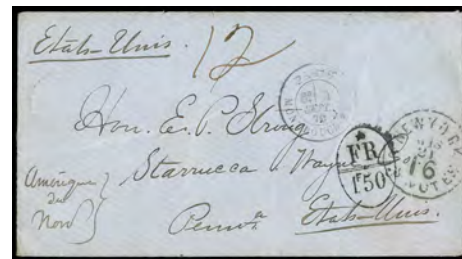 Etats-Unis.
12
Hon. E. P. Strong
Starrucca, Wayne
Amérique
du
Nord
Penna
Etats-Unis.
FR.
1F50C
NEW YORK
16
NOTES